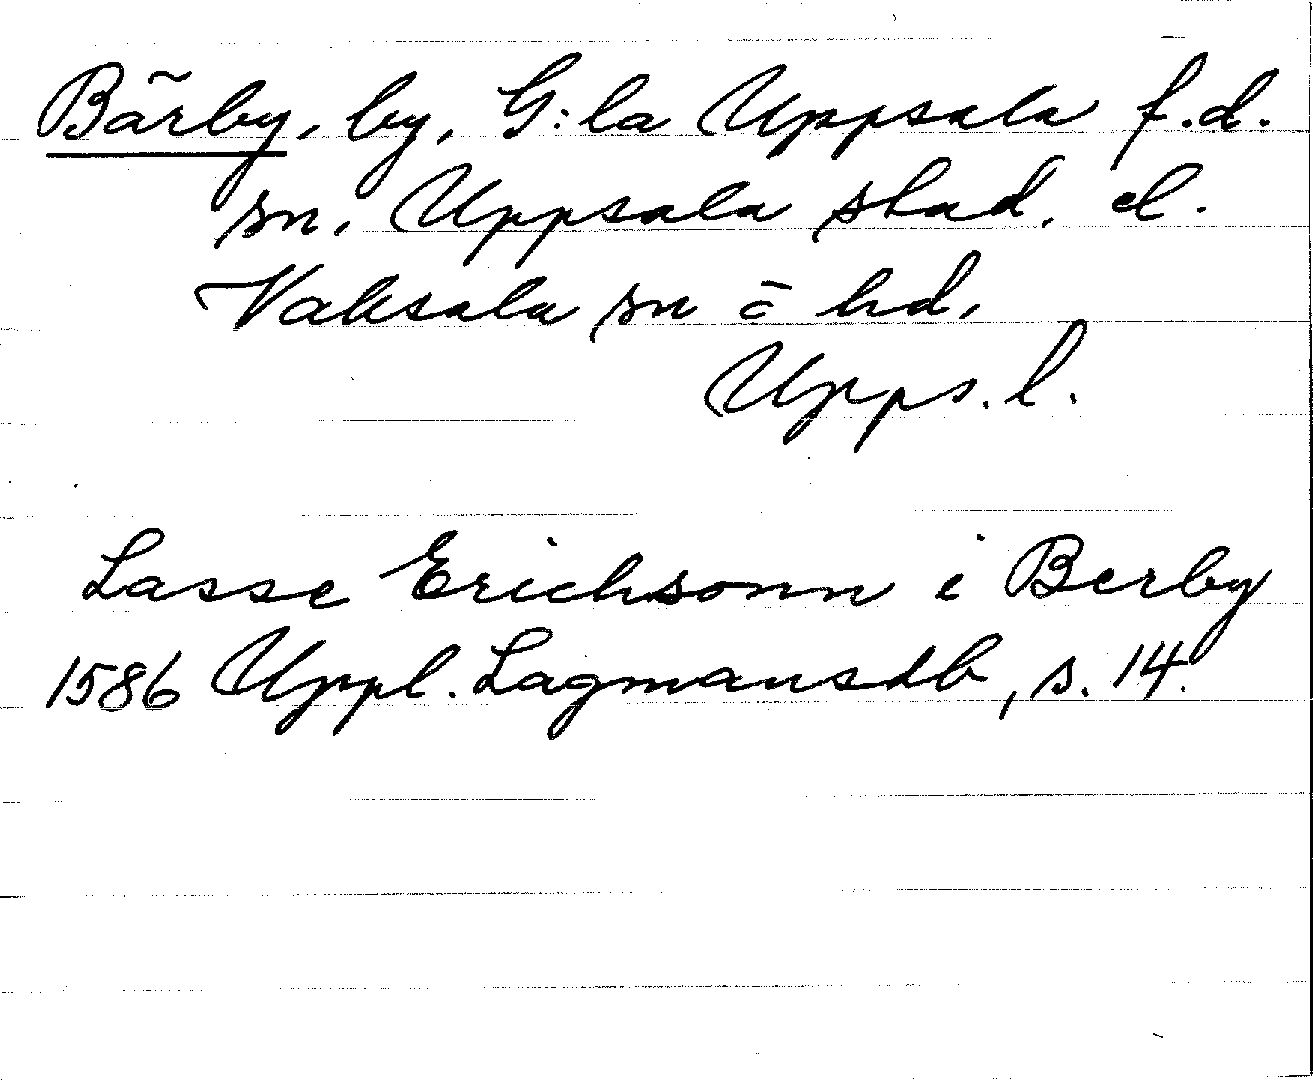 Bärby, by, G:la Uppsala f.d.
sn, Uppsala stad, el.
Vaksala sn o hd,
Upps. l.
Lasse Erichsonn i Berby
1586 Uppl. Lagmansdb, s. 14.